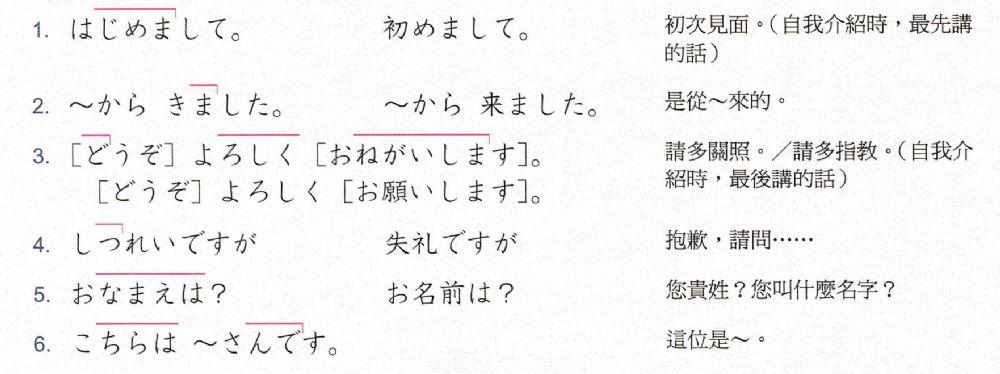 1. はじめまして。 初めまして。 初次見面。（自我介紹時，最先講
的話）
2. ～から きました。 ～から 来ました。 是從～來的。
3. ［どうぞ］よろしく［おねがいします］。 請多關照。／請多指教。（自我介
［どうぞ］よろしく［お願いします］。 紹時，最後講的話）
4. しつれいですが 失礼ですが 抱歉，請問……
5. おなまえは？ お名前は？ 您貴姓？您叫什麼名字？
6. こちらは ～さんです。 這位是～。